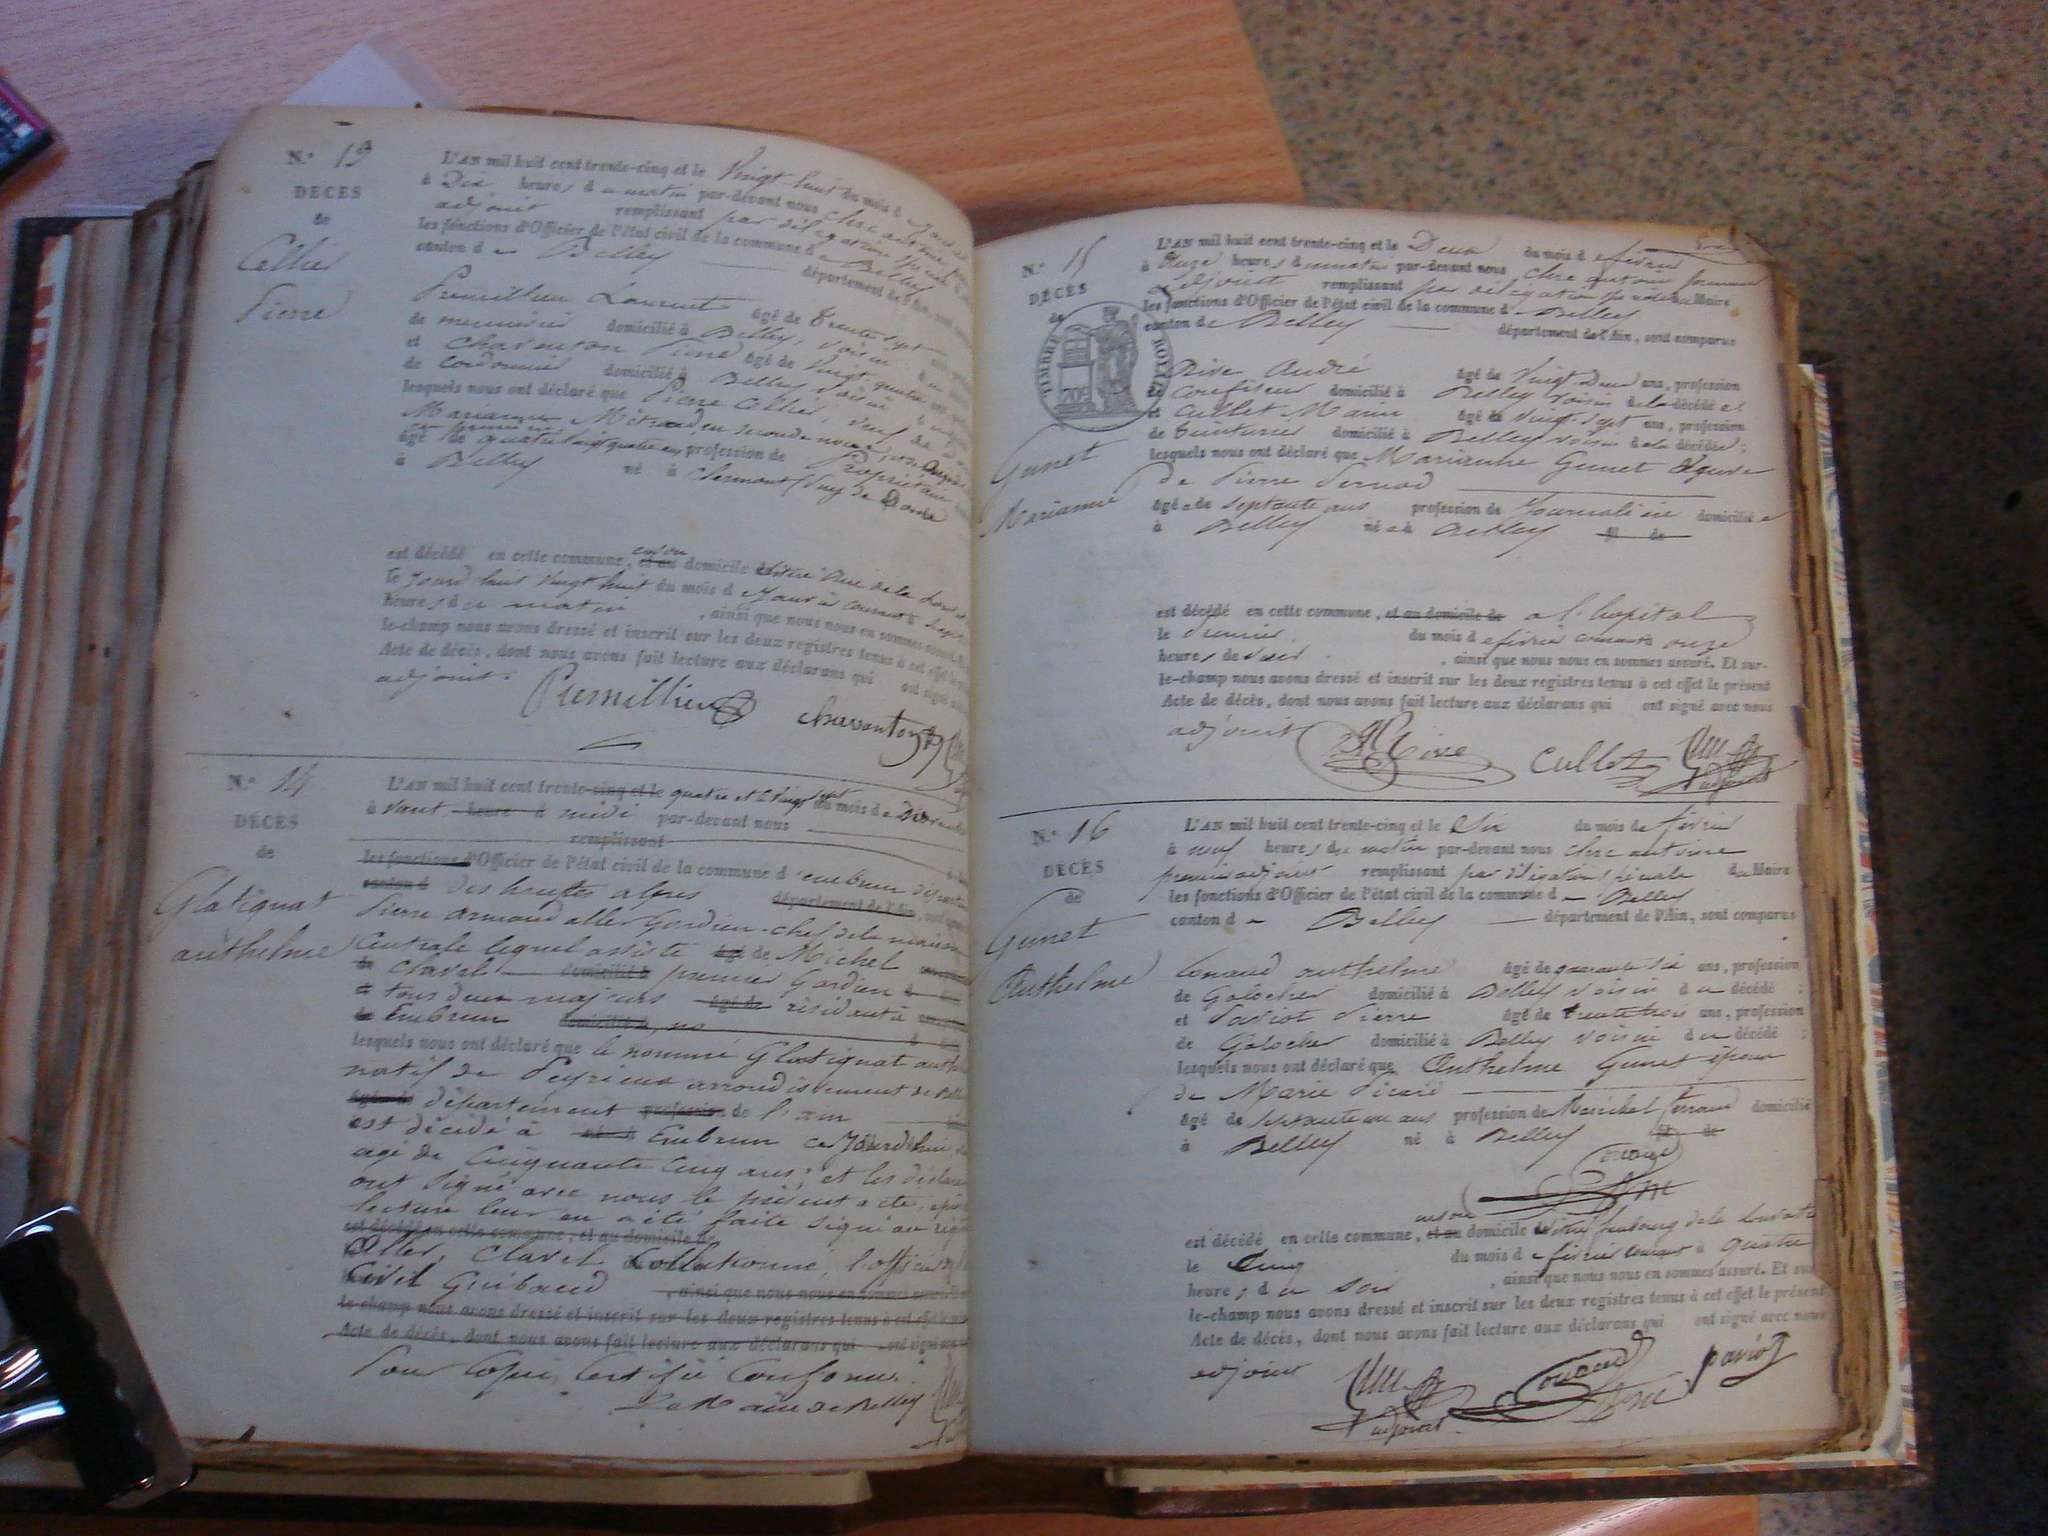 N.º 13
DÉCÈS
de
Cellier
Pierre
L'AN mil huit cent trente-cinq et le Vingt huit du mois d
à Dix heures du matin par-devant nous Clerc antoine
adjoint remplissant par délégation
les fonctions d'Officier de l'état civil de la commune de Belley
canton de Belley département de l'Ain
Premillieu Laurent âgé de trente sept
de menuisier domicilié à Belley, voisin
et Chaventon Pierre âgé de Vingt quatre
de cordonnier domicilié à Belley voisin
lesquels nous ont déclaré que Pierre Cellier, veuf de
Marianne Métraud, en seconde noce
âgé de quatre vingt quatre ans profession de Propriétaire
à Belley né à Clermont (Puy de Dome
est décédé en cette commune, en son domicile situé Rue de la
le jourd'hui vingt huit du mois de Janvier courant à Sept
heures du matin, ainsi que nous nous en sommes
le-champ nous avons dressé et inscrit sur les deux registres tenus à cet effet le
Acte de décès, dont nous avons fait lecture aux déclarans qui ont signé
adjoint. Premillieu chaventon
N.º 14
DÉCÈS
de
Glatignat
anthelme
L'AN mil huit cent trente-cinq et le quatre et le Vingt sept du mois de
à vant heure d midi par-devant nous
remplissant
les fonctions d'Officier de l'état civil de la commune d'embrun
canton d des hautes alpes département de l'Ain
Pierre armand aller Gardien-chef de la maison
Centrale lequel assisté âgé de Michel
de Clavel domicilié à premier Gardien
et tous deux majeurs âgé de résidant à
de Embrun domicilié à
lesquels nous ont déclaré que le nommé Glatignat
natif de Peyrieux arrondissement de
département profession de l'ain
est décédé à né à Embrun ce Jourd'hui
agé de Cinquante Cinq ans; et les
ont signé avec nous le présent acte, après
lecture leur en a été faite signé au
est décédé en cette commune, et au domicile de
Aller, Clavel Collationné, l'officier
Civil Guibaud, ainsi que nous nous en sommes
le-champ nous avons dressé et inscrit sur les deux registres tenus à cet effet
Acte de décès, dont nous avons fait lecture aux déclarans qui ont signé
Pour Copie Certifié Conforme.
Le Maire de Belley
N.º 15
DÉCÈS
de
TIMBRE ROYAL
70
Gunet
Marianne
L'AN mil huit cent trente-cinq et le Deux du mois de février
à Onze heures du matin par-devant nous Clerc antoine premier
adjoint remplissant par délégation du Maire
les fonctions d'Officier de l'état civil de la commune de Belley
canton de Belley département de l'Ain, sont comparus
Rive André âgé de Vingt Deux ans, profession
de Confiseur domicilié à Belley voisin de la décédée et
et Cullet Marin âgé de vingt-sept ans, profession
de teinturier domicilié à Belley voisin de la décédée;
lesquels nous ont déclaré que Marianne Gunet Veuve
de Pierre Pernod
âgée de septante ans profession de Journalière domiciliée
à Belley née à Belley fil de
est décédé en cette commune, et au domicile de a l'hopital
le premier du mois de février courant à onze
heures du soir, ainsi que nous nous en sommes assuré. Et sur-
le-champ nous avons dressé et inscrit sur les deux registres tenus à cet effet le présent
Acte de décès, dont nous avons fait lecture aux déclarans qui ont signé avec nous
adjoint Rive Cullet
N.º 16
DÉCÈS
de
Gunet
Anthelme
L'AN mil huit cent trente-cinq et le Six du mois de février
à neuf heures du matin par-devant nous Clerc antoine
premier adjoint remplissant par délégation spéciale du Maire
les fonctions d'Officier de l'état civil de la commune de Belley
canton de Belley département de l'Ain, sont comparus
anthelme âgé de quarante six ans, profession
de Galocher domicilié à Belley voisin du décédé;
et Paviot Pierre âgé de trente trois ans, profession
de Galocher domicilié à Belley voisin du décédé;
lesquels nous ont déclaré que Anthelme Gunet époux
de Marie Picard
âgé de septante un ans profession de Maréchal ferrand domicilié
à Belley né à Belley fil de
est décédé en cette commune, en son domicile situé faubourg de la
le Cinq du mois de février courant à quatre
heures du soir, ainsi que nous nous en sommes assuré. Et sur
le-champ nous avons dressé et inscrit sur les deux registres tenus à cet effet le présent
Acte de décès, dont nous avons fait lecture aux déclarans qui ont signé avec nous
adjoint paviot